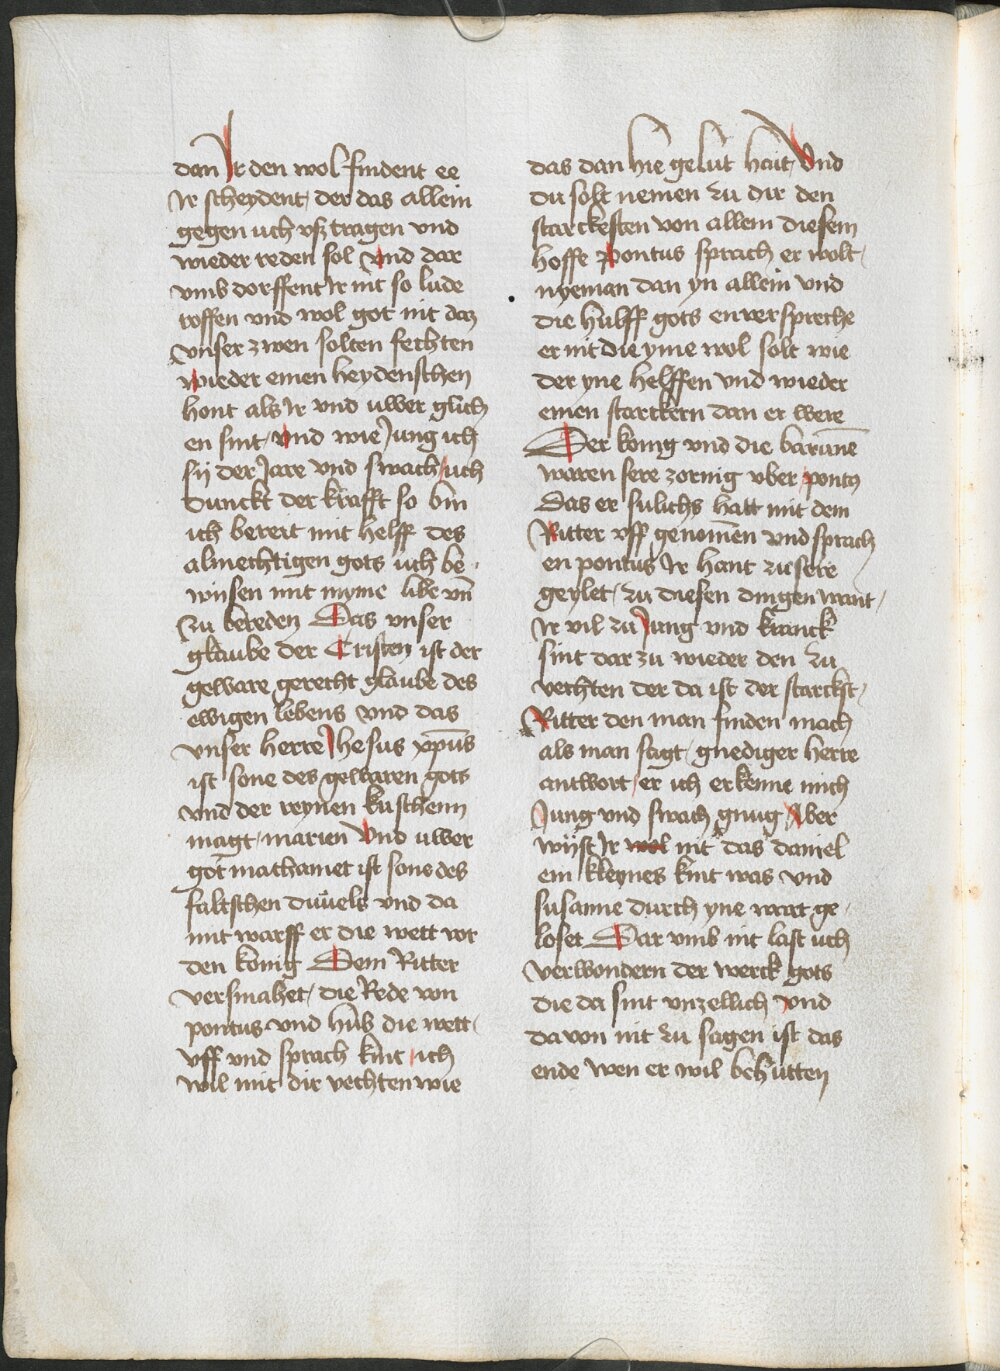 dan Ir den wol findent ee
Ir scheydent der das allein
gegen uch vsz tragen vnd
wieder reden sol vnd dar
vmb dorffent Ir nit so lude
roffen vnd wol got nit daz
vnser zwen solten fechten
wieder einen heydenschen
hont als Ir vnd uwer glich
en sint / vnd wie Jung ich
sij der Jare vnd swach / uch
dunckt der krafft so bin
ich bereit mit helff des
almechtigen gots uch be
wijsen mit myme libe vn̄
zu bereden Das vnser
glaube der Cristen ist der
geware gerecht glaube des
ewigen lebens vnd das
vnser herre Jhesus xp̄us
ist sone des gewaren gots
vnd der reynen kuschenn
magt / marien Vnd uwer
got machamet ist sone des
faltschen duuels vnd da
mit warff er die wett vor
den konig Dem Ritter
versmahet / die Rede von
pontus vnd hub die wett
vff vnd sprach kint / ich
wil mit dir vechten wie
das dan hie gelut hait / Vnd
du solt nemen zu dir den
starckesten von allem diesem
hoffe Pontus sprach er wolt
nyeman dan yn allein vnd
die hulff gots enverspreche
er nit die yme wol solt wie
der yne helffen vnd wieder
einen starckern dan er were
Der konig vnd die barunē
waren sere zornig vber pontus
Das er sulichs hatt mit dem
Ritter vff genom̄en vnd sprach
en pontus Ir hant zu sere
geylet / zu diesen dingen want
Ir vil zu Jung vnd kranck
sint dar zu wieder den zu
vechten der da ist der starckst
Ritter den man finden mach
als man sagt / gnediger herre
antwort / er ich erkenne mich
Jung vnd swach gnug Aber
wijst Ir wol nit das daniel
ein kleynes kint was vnd
susanne durch yne wart ge
loset Dar vmb nit last uch
verwondern der werck gots
die da sint vnzellich vnd
da von nit zu sagen ist das
ende wen er wil behutten